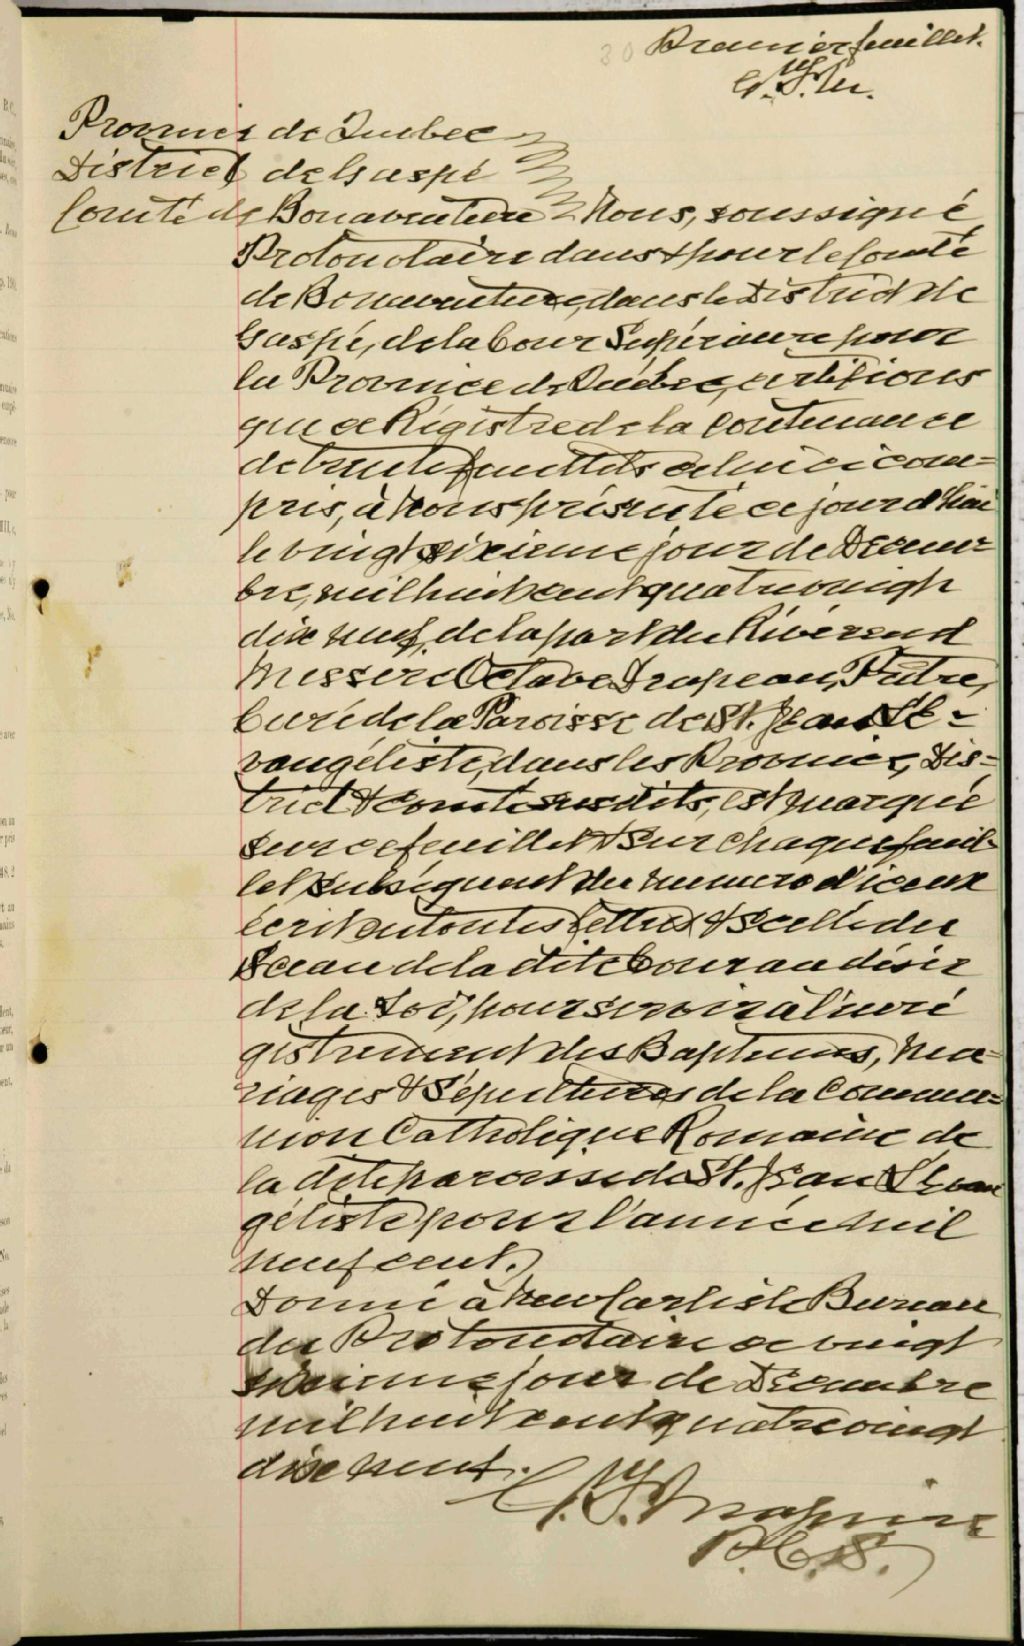 30 Premier feuillet.
Province de Québec
District de Gaspé
Comté de Bonaventure Nous, soussigné
Protonotaire dans & pour le Comté
de Bonaventure, dans le District de
Gaspé, de la Cour Supérieure pour
la Province de Québec, certifions
que ce Régistre de la Contenance
de trente feuillets celui ci com=
pris, à nous présenté ce jourd'hui
le vingt sixieme jour de Décem=
bre, mil huit cent quatrevingt
dix neuf, de la part du Révérend
Messire Octave Drapeau, Prêtre,
Curé de la Paroisse de St. Jean L'E=
vangéliste, dans les Province, Dis=
trict & comté susdits, est marqué
sur ce feuillet & sur chaque feuil-
let subséquent du numero d'iceux
écrit en toutes lettres & scellé du
Sceau de la dite Cour au désir
de la Loi, pour servir à l'enré
gistrement des Baptemes, Ma=
riages & Sépultures de la Commu=
nion Catholique Romaine de
la dite paroisse de St. Jean L'Evan
géliste pour l'année mil
neuf cent.
Donné à New Carlisle Bureau
du Protonotaire ce vingt
sixieme jour de Décembre
mil huit cent quatrevingt
dix neuf.
P.C.S.